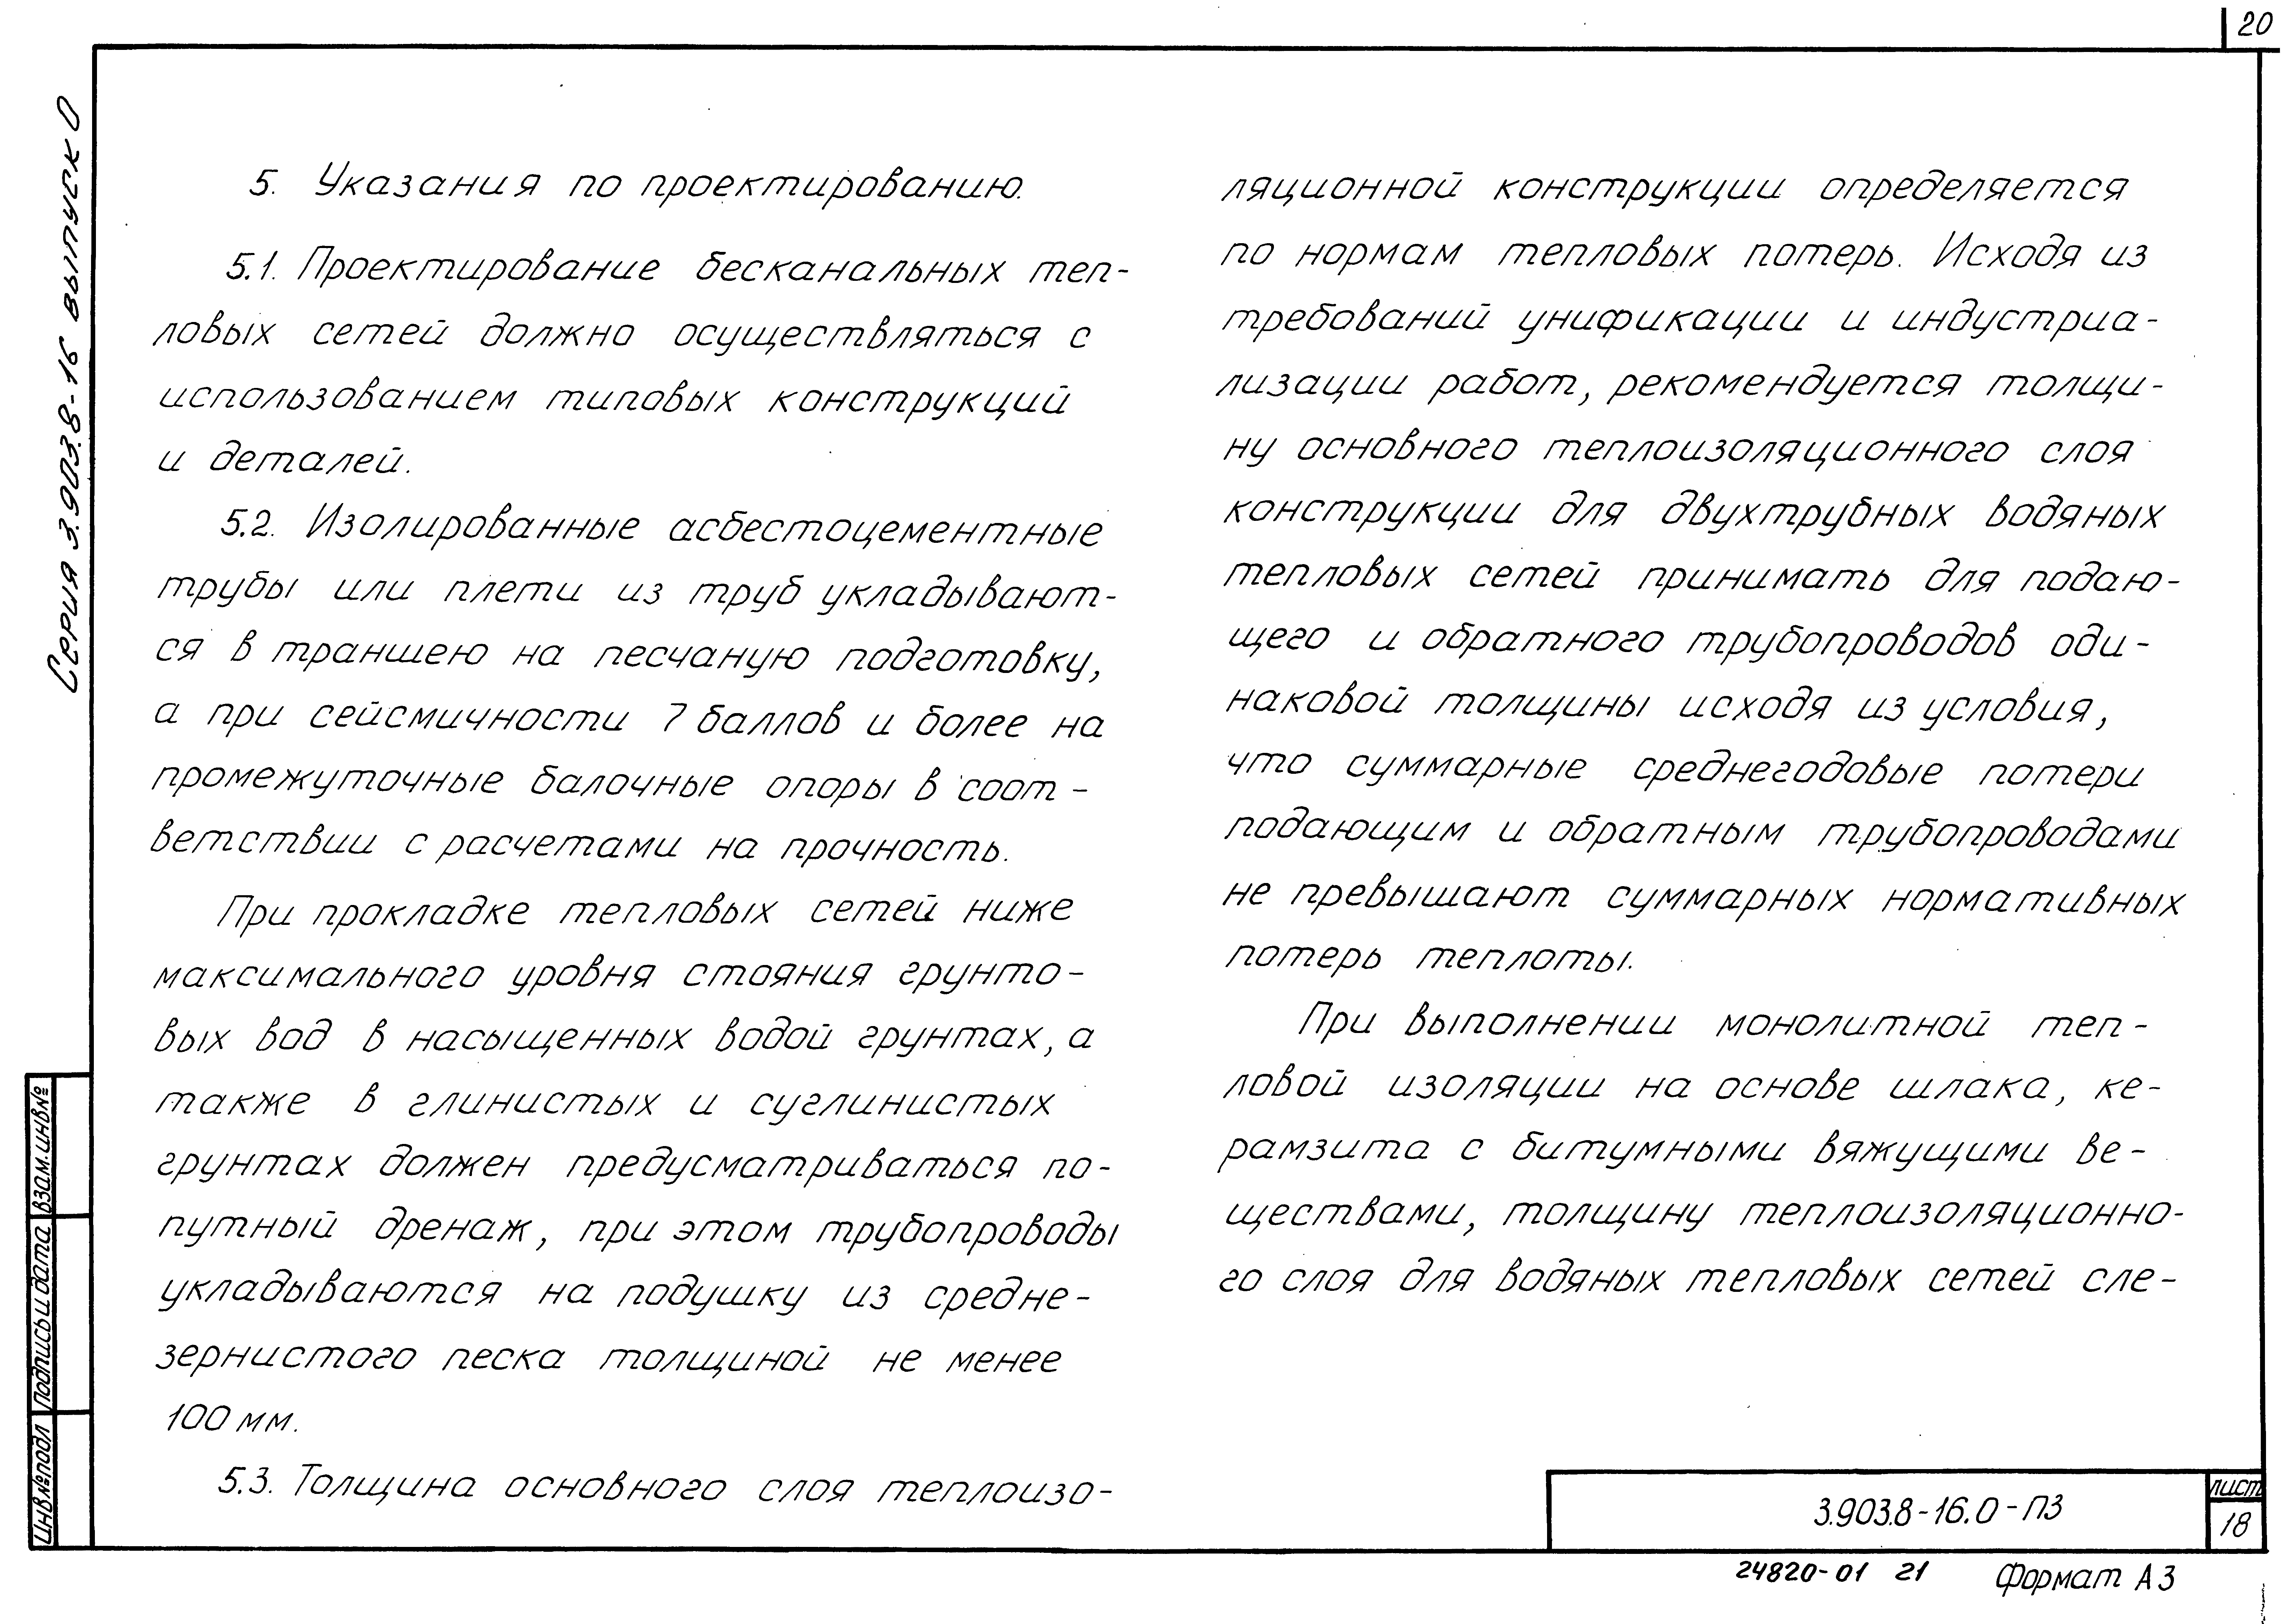 20
Серия 3.903.8-16 выпуск 0
5. Указания по проектированию.
5.1. Проектирование бесканальных теп-
ловых сетей должно осуществляться с
использованием типовых конструкций
и деталей.
5.2. Изолированные асбестоцементные
трубы или плети из труб укладывают-
ся в траншею на песчаную подготовку,
а при сейсмичности 7 баллов и более на
промежуточные балочные опоры в соот-
ветствии с расчетами на прочность.
При прокладке тепловых сетей ниже
максимального уровня стояния грунто-
вых вод в насыщенных водой грунтах, а
также в глинистых и суглинистых
грунтах должен предусматриваться по-
путный дренаж, при этом трубопроводы
укладываются на подушку из средне-
зернистого песка толщиной не менее
100 мм.
5.3. Толщина основного слоя теплоизо-
ляционной конструкции определяется
по нормам тепловых потерь. Исходя из
требований унификации и индустриа-
лизации работ, рекомендуется толщи-
ну основного теплоизоляционного слоя
конструкции для двухтрубных водяных
тепловых сетей принимать для подаю-
щего и обратного трубопроводов оди-
наковой толщины исходя из условия,
что суммарные среднегодовые потери
подающим и обратным трубопроводами
не превышают суммарных нормативных
потерь теплоты.
При выполнении монолитной теп-
ловой изоляции на основе шлака, ке-
рамзита с битумными вяжущими ве-
ществами, толщину теплоизоляционно-
го слоя для водяных тепловых сетей сле-
Инв№подл Подпись и дата Взам.инв№
3.903.8-16.0-ПЗ
лист
18
24820-01 21 Формат А3